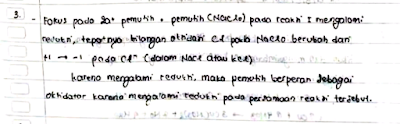 3. - Fokus pada zat pemutih. pemutih (NaClO) pada reaksi I mengalami
reduksi, tepatnya bilangan oksidasi Cl pada NaClO berubah dari
+1 → -1 pada Cl⁻ (dalam NaCl atau KCl)
karena mengalami reduksi, maka pemutih berperan sebagai
oksidator karena mengalami reduksi pada persamaan reaksi tersebut.